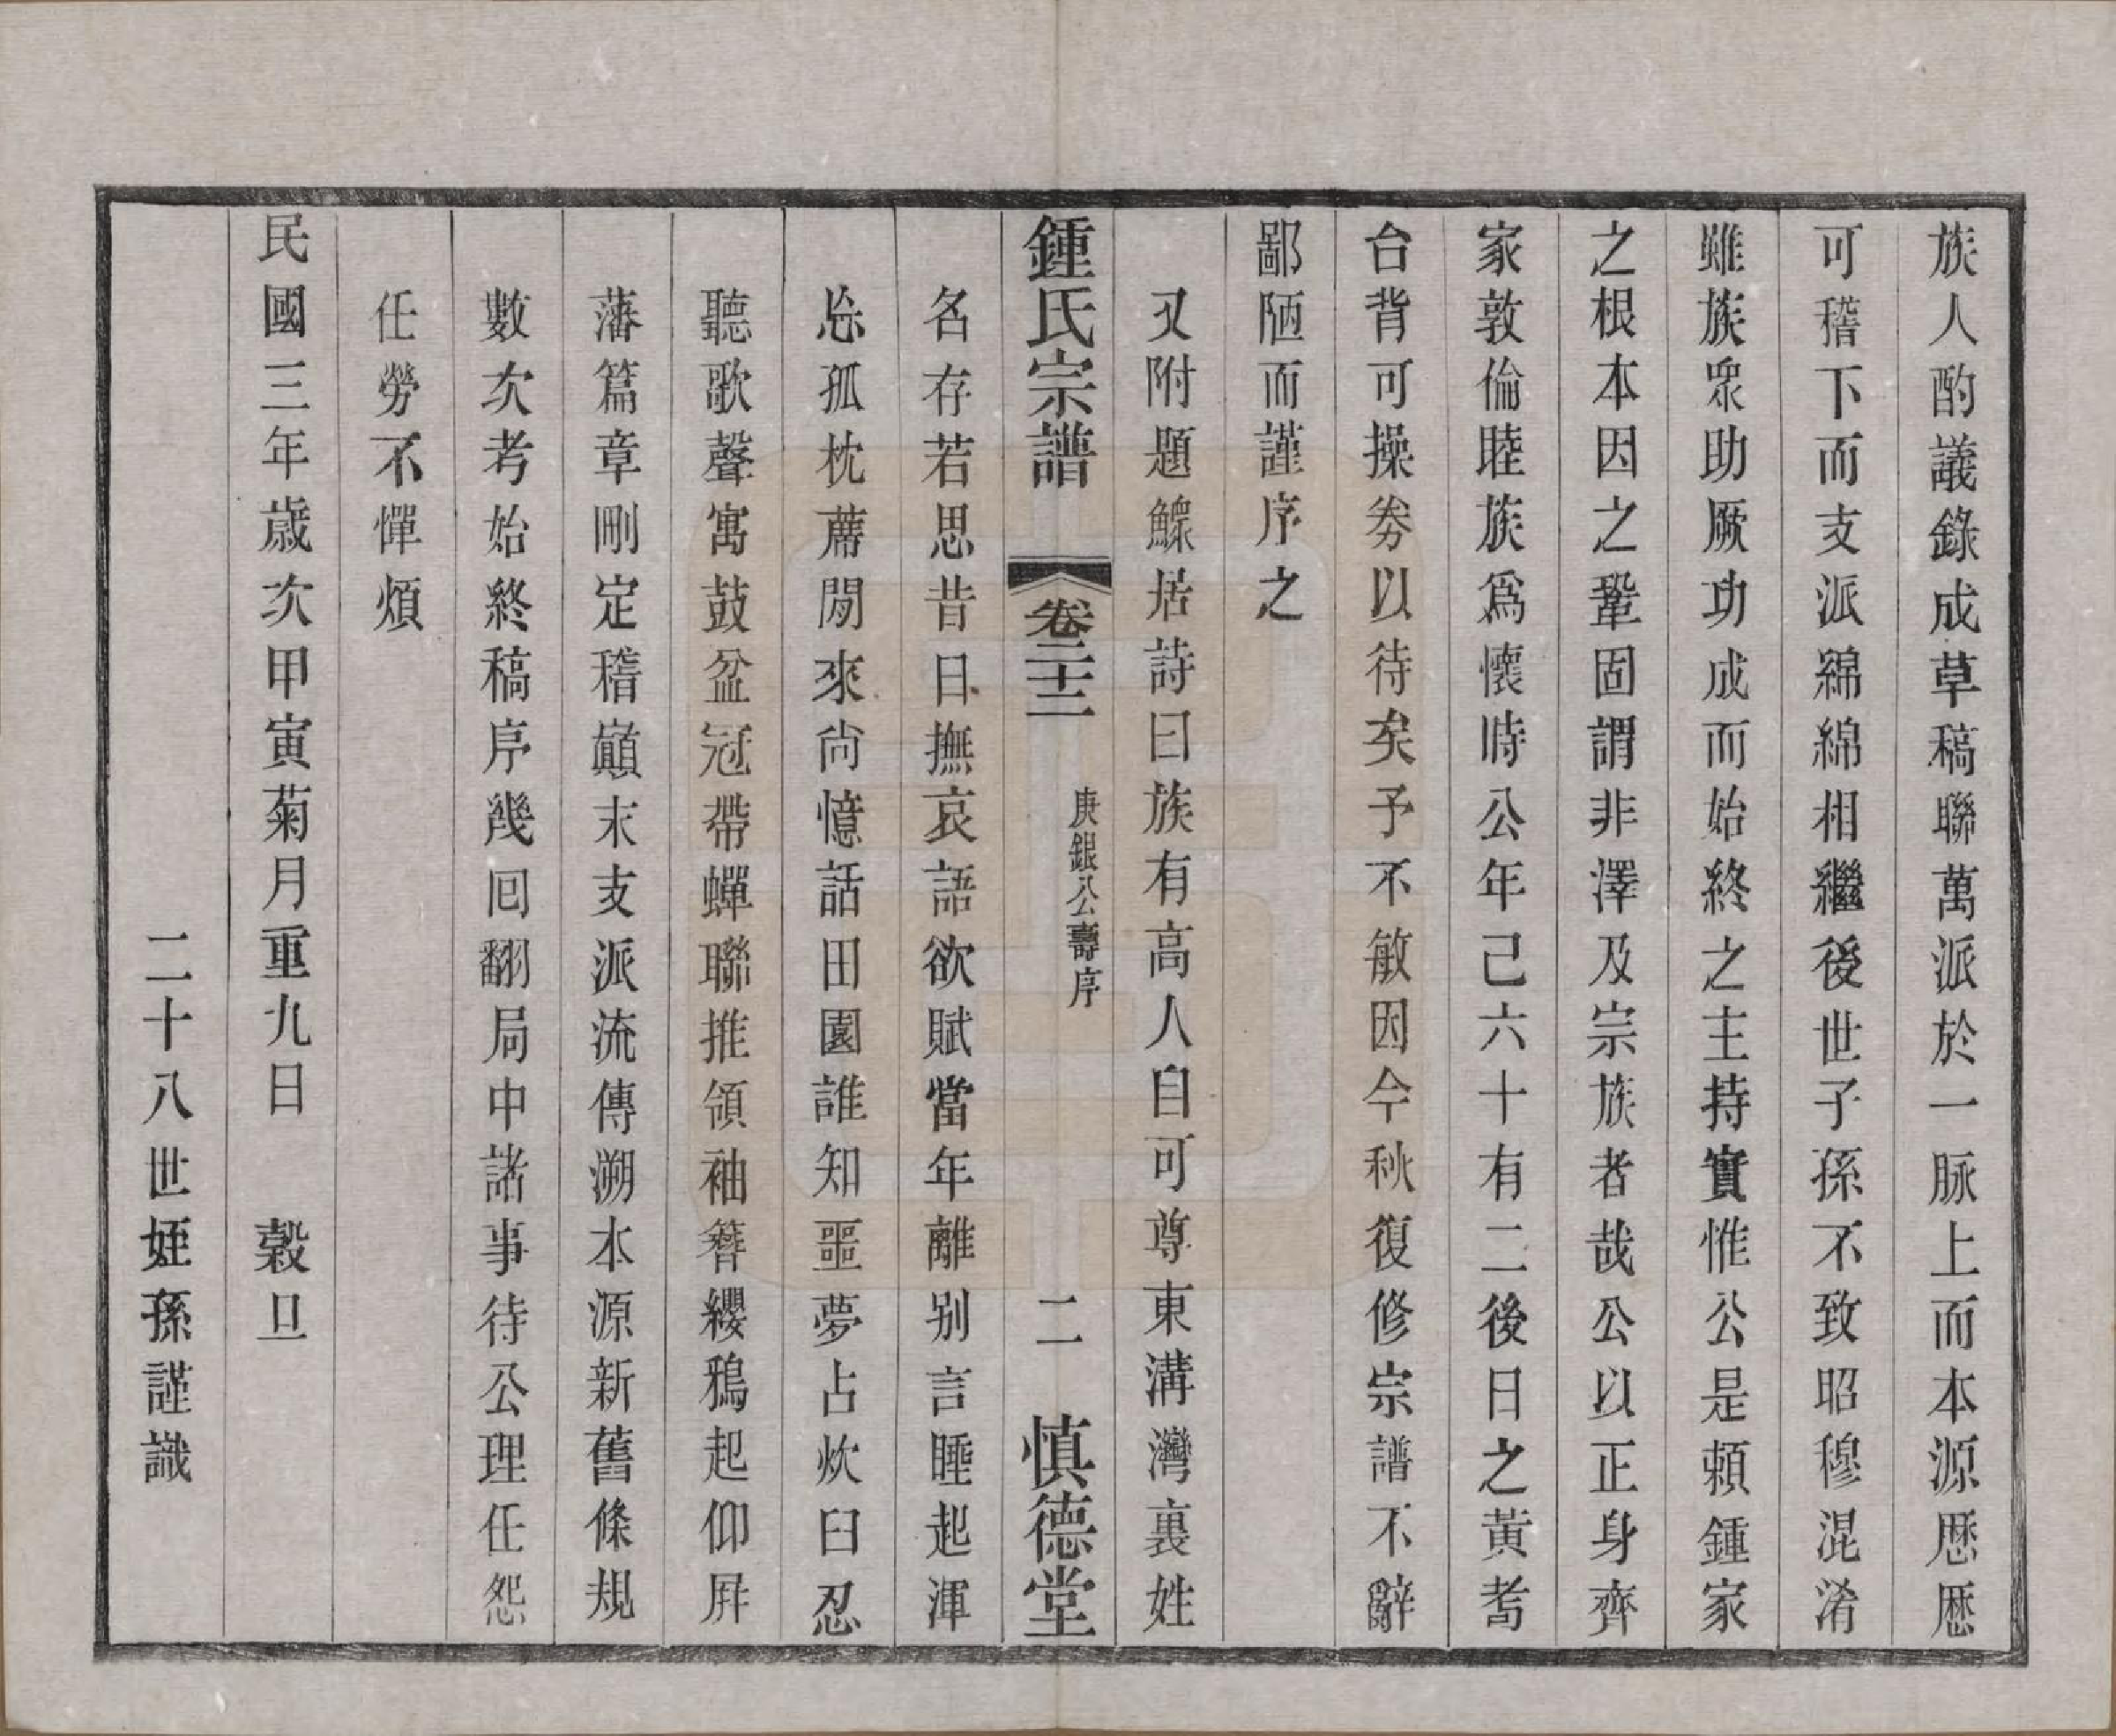 族人酌議錄成草稿聯萬派於一脈上而本源厯厯
可稽下而支派綿綿相繼後世子孫不致昭穆混淆
雖族衆助厥功成而始終之主持實惟公是頼鍾家
之根本因之鞏固謂非澤及宗族者哉公以正身齊
家敦倫睦族爲懷時公年己六十有二後日之黃耇
台背可操劵以待矣予不敏因今秋復修宗譜不辭
鄙陋而謹序之
又附題鰥居詩曰族有高人自可尊東溝灣裏姓
鍾氏宗譜 卷二十二 庚銀公壽序 二 慎德堂
名存若思昔日撫哀語欲賦當年離别言睡起渾
忘孤枕蓆閒來尚憶話田園誰知噩夢占炊臼忍
聽歌聲寓鼓盆冠帶蟬聯推領袖簪纓鴉起仰屛
藩篇章刪定稽巔末支派流傳溯本源新舊條規
數次考始終稿序幾回翻局中諸事待公理任怨
任勞不憚煩
民國三年歲次甲寅菊月重九日 穀旦
二十八世姪孫謹識